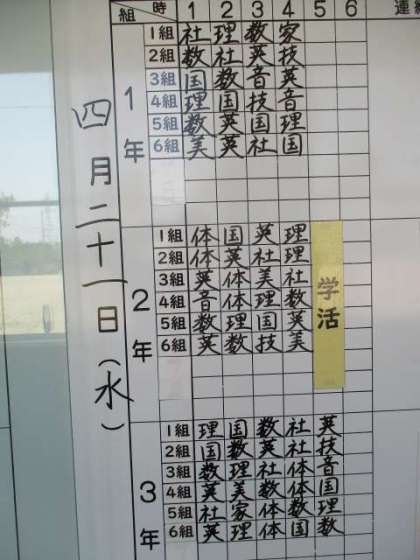 組 時 1 2 3 4 5 6 連
四月二十一日(水)
1年
1組 社 理 数 家
2組 数 社 英 技
3組 国 数 音 英
4組 理 国 技 音
5組 数 英 国 理
6組 美 英 社 国
2年
1組 体 国 英 理
2組 体 英 社 理
3組 英 体 美 社
4組 音 体 理 数
5組 数 理 国 英
6組 英 数 技 美
学活
3年
1組 理 国 数 社 英
2組 国 数 英 社 技
3組 数 理 社 体 音
4組 英 美 数 体 国
5組 社 家 体 数 理
6組 英 体 国 数